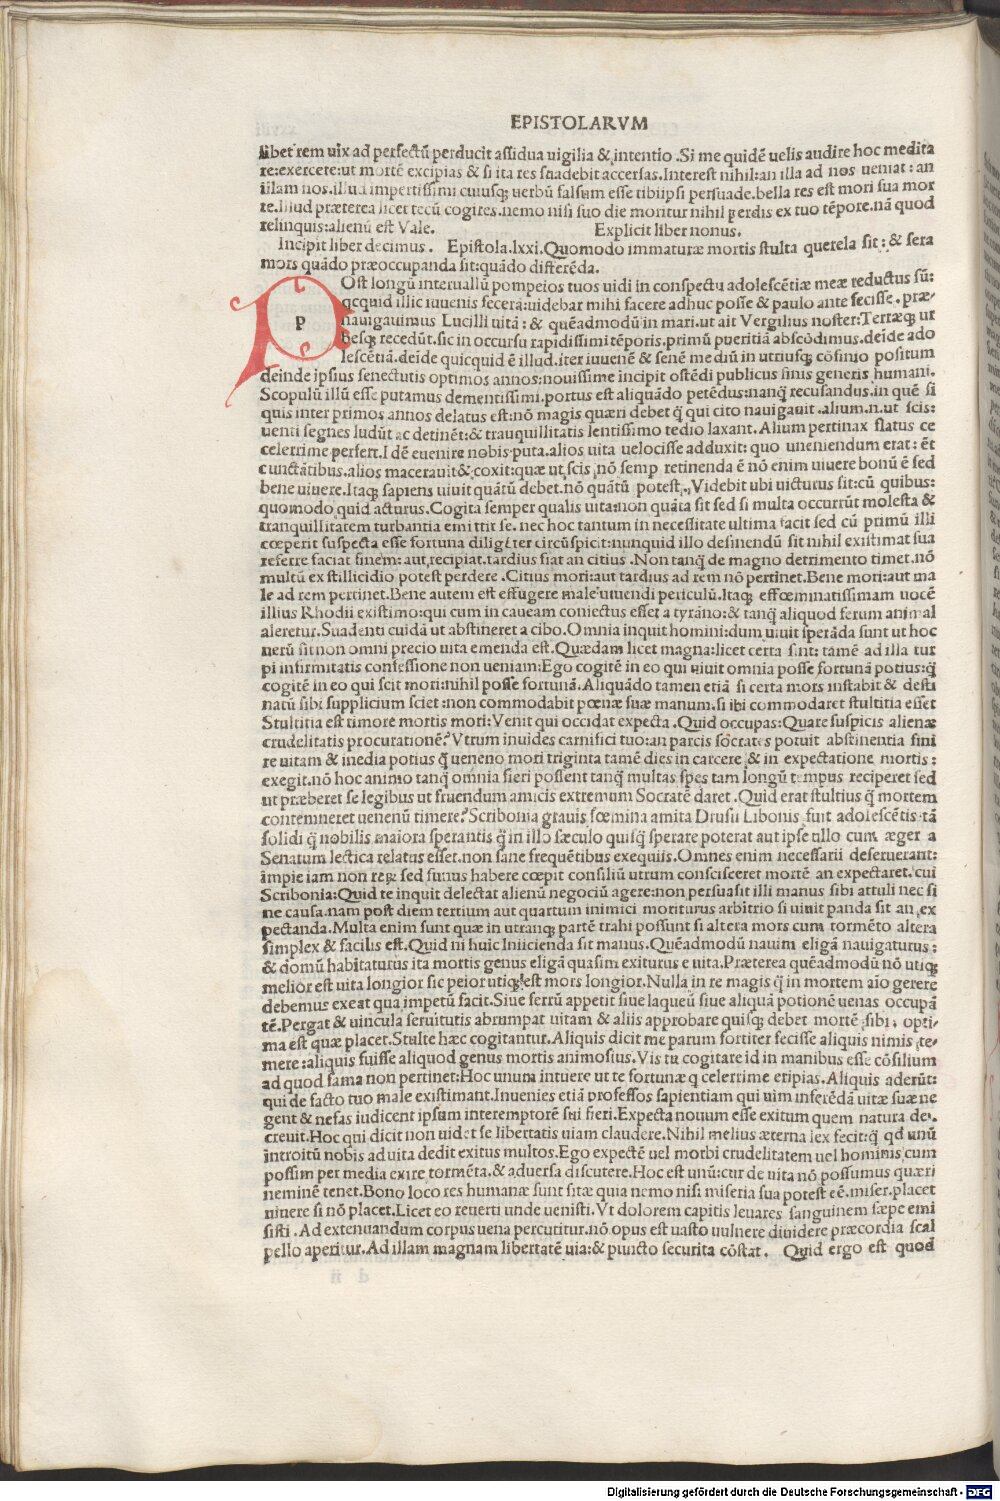 EPISTOLARVM
libet rem uix ad perfectū perducit assidua uigilia & intentio . Si me quidē uelis audire hoc medita
re:exercete:ut mortē excipias & si ita res suadebit accersas.Interest nihil:an illa ad nos ueniat : an
illam nos.illud impertissimi cuiusq; uerbū falsum esse tibiipsi persuade.bella res est mori sua mor
te.Illud præterea licet tecū cogites.nemo nisi suo die moritur nihil perdis ex tuo tēpore.nā quod
relinquis:alienū est Vale. Explicit liber nonus.
Incipit liber decimus. Epistola.lxxi.Quomodo immaturæ mortis stulta querela sit: & sera
mors quādo præoccupanda sit:quādo differēda.
P
Ost longū interuallū pompeios tuos uidi in conspectu adolescētiæ meæ reductus sū:
qcquid illic iuuenis fecera:uidebar mihi facere adhuc posse & paulo ante fecisse. præ-
nauigauimus Lucilli uitā : & quēadmodū in mari.ut ait Vergilius noster:Terræq; ur
besq; recedūt.sic in occursu rapidissimi tēporis.primū pueritiā abscōdimus.deide ado
lescētiā.deide quicquid ē illud.iter iuuenē & senē mediū in utriusq; cōfinio positum
deinde ipsius senectutis optimos annos:nouissime incipit ostēdi publicus finis generis humani.
Scopulū illū esse putamus dementissimi.portus est aliquādo petēdus:nanq̄ recusandus.in quē si
quis inter primos annos delatus est:nō magis quæri debet q̄ qui cito nauigauit .alium.n.ut scis:
uenti segnes ludūt ac detinēt:& trauquillitatis lentissimo tedio laxant.Alium pertinax flatus ce
celerrime perfert.Idē euenire nobis puta.alios uita uelocisse adduxit: quo uneniendum erat: ēt
cunctātibus.alios macerauit & coxit:quæ ut scis nō semp retinenda ē nō enim uiuere bonū ē sed
bene uiuere.Itaq; sapiens uiuit quātū debet.nō quātū potest.Videbit ubi uicturus sit:cū quibus:
quomodo quid acturus.Cogita semper qualis uita:non quāta sit sed si multa occurrūt molesta &
tranquillitatem turbantia emittit se. nec hoc tantum in necessitate ultima facit sed cū primū illi
cœperit suspecta esse fortuna diligēter circūspicit:nunquid illo desinendū sit nihil existimat sua
referre faciat finem: aut recipiat.tardius fiat an citius .Non tanq̄ de magno detrimento timet.nō
multū ex stillicidio potest perdere .Citius mori:aut tardius ad rem nō pertinet.Bene mori:aut ma
le ad rem pertinet.Bene autem est effugere male uiuendi periculū.Itaq; effœminatissimam uocē
illius Rhodii existimo:qui cum in caueam coniectus esset a tyrāno:& tanq̄ aliquod ferum animal
aleretur.Suadenti cuidā ut abstineret a cibo.Omnia inquit homini:dum uiuit sperāda sunt ut hoc
uerū sit non omni precio uita emenda est.Quædam licet magna:licet certa sint: tamē ad illa tur
pi infirmitatis confessione non ueniam:Ego cogitē in eo qui uiuit omnia posse fortunā potius:q̄
cogitē in eo qui scit mori:nihil posse fortunā.Aliquādo tamen etiā si certa mors instabit & desti
natū sibi supplicium sciet :non commodabit pœnæ suæ manum.si ibi commodaret stultitia esset
Stultitia est timore mortis mori:Venit qui occidat expecta .Quid occupas:Quare suspicis alienæ
crudelitatis procurationē?Vtrum inuides carnifici tuo:an parcis sōcrates potuit abstinentia fini
re uitam & inedia potius q̄ ueneno mori triginta tamē dies in carcere & in expectatione mortis :
exegit.nō hoc animo tanq̄ omnia fieri possent tanq̄ multas spes tam longū tempus reciperet sed
ut præberet se legibus ut fruendum amicis extremum Socratē daret .Quid erat stultius q̄ mortem
contemneret uenenū timere?Scribonia grauis fœmina amita Drusii Libonis fuit adolescētis tā
solidi q̄ nobilis maiora sperantis q̄ in illo sæculo quisq̄ sperare poterat aut ipse ullo cum æger a
Senatum lectica relatus esset.non sane frequētibus exequiis.Omnes enim necessarii deseruerant:
impie iam non reum sed funus habere cœpit consiliū utrum conscisceret mortē an expectaret.cui
Scribonia:Quid te inquit delectat alienū negociū agere:non persuasit illi manus sibi attuli nec si
ne causa.nam post diem tertium aut quartum inimici moriturus arbitrio si uiuit panda sit an ex
pectanda.Multa enim sunt quæ in utranq; partē trahi possunt si altera mors cum tormēto altera
simplex & facilis est.Quid ni huic Iniicienda sit manus.Quēadmodū nauim eligā nauigaturus :
& domū habitaturus ita mortis genus eligā quasim exiturus e uita.Præterea quēadmodū nō utiq;
melior est uita longior sic peior utiq; est mors longior.Nulla in re magis q̄ in mortem aīo gerere
debemus exeat qua impetū facit.Siue ferrū appetit siue laqueū siue aliquā potionē uenas occupā
tē.Pergat & uincula seruitutis abrumpat uitam & aliis approbare quisq; debet mortē sibi. opti-
ma est quæ placet.Stulte hæc cogitantur.Aliquis dicit me parum fortiter fecisse aliquis nimis te-
mere :aliquis fuisse aliquod genus mortis animosius.Vis tu cogitare id in manibus esse cōsilium
ad quod fama non pertinet:Hoc unum intuere ut te fortunæ q celerrime eripias.Aliquis aderūt:
qui de facto tuo male existimant.Inuenies etiā professos sapientiam qui uim inferēdā uitæ suæ ne
gent & nefas iudicent ipsum interemptorē sui fieri.Expecta nouum esse exitum quem natura de-
creuit.Hoc qui dicit non uidet se libertatis uiam claudere.Nihil melius æterna lex fecit:q̄ qd unū
introitū nobis ad uita dedit exitus multos.Ego expectē uel morbi crudelitatem uel hominis cum
possim per media exire tormēta.& aduersa discutere.Hoc est unū:cur de uita nō possumus quæri
neminē tenet.Bono loco res humanæ sunt sitæ quia nemo nisi miseria sua potest eē.miser.placet
uiuere si nō placet.Licet eo reuerti unde uenisti.Vt dolorem capitis leuares sanguinem sæpe emi
sisti . Ad extenuandum corpus uena percutitur.nō opus est uasto uulnere diuidere præcordia scal
pello aperitur.Ad illam magnam libertatē uia:& puncto securita cōstat. Quid ergo est quod
Digitalisierung gefördert durch die Deutsche Forschungsgemeinschaft - DFG